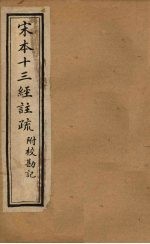 宋本十三經註疏附挍勘記